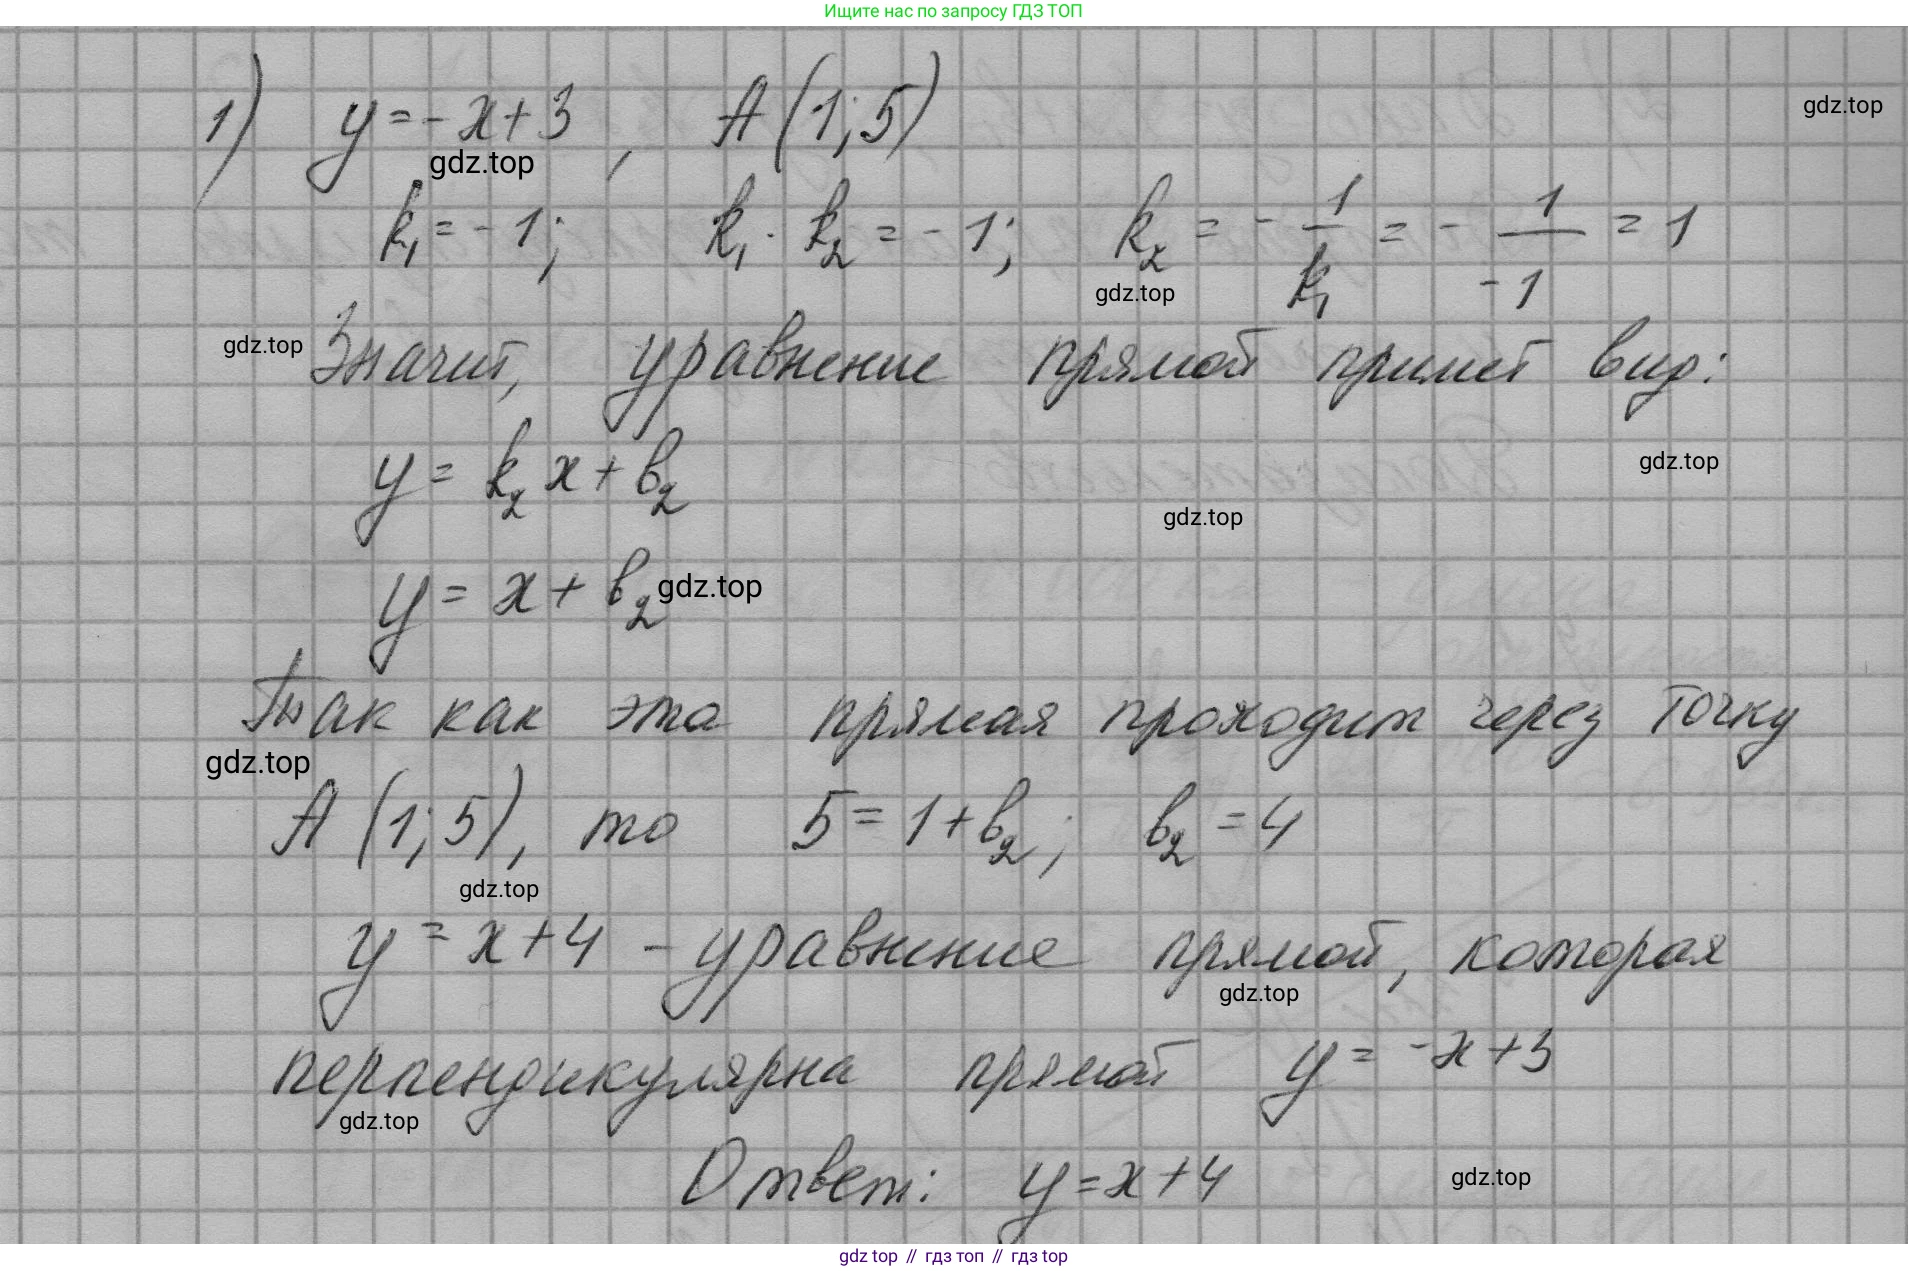 Ищите нас по запросу ГДЗ ТОП
1) y = -x + 3, A(1; 5)
gdz.top
gdz.top
k₁ = -1; k₁ · k₂ = -1; k₂ = - 1/k₁ = - 1/-1 = 1
gdz.top
gdz.top
Значит, уравнение прямой примет вид:
y = k₂ x + b₂
gdz.top
gdz.top
y = x + b₂
gdz.top
Так как эта прямая проходит через точку
gdz.top
A (1; 5), то 5 = 1 + b₂; b₂ = 4
gdz.top
y = x + 4 - уравнение прямой, которая
gdz.top
перпендикулярна прямой y = -x + 3
gdz.top
Ответ: y = x + 4
gdz.top
gdz top // гдз топ // гдз top